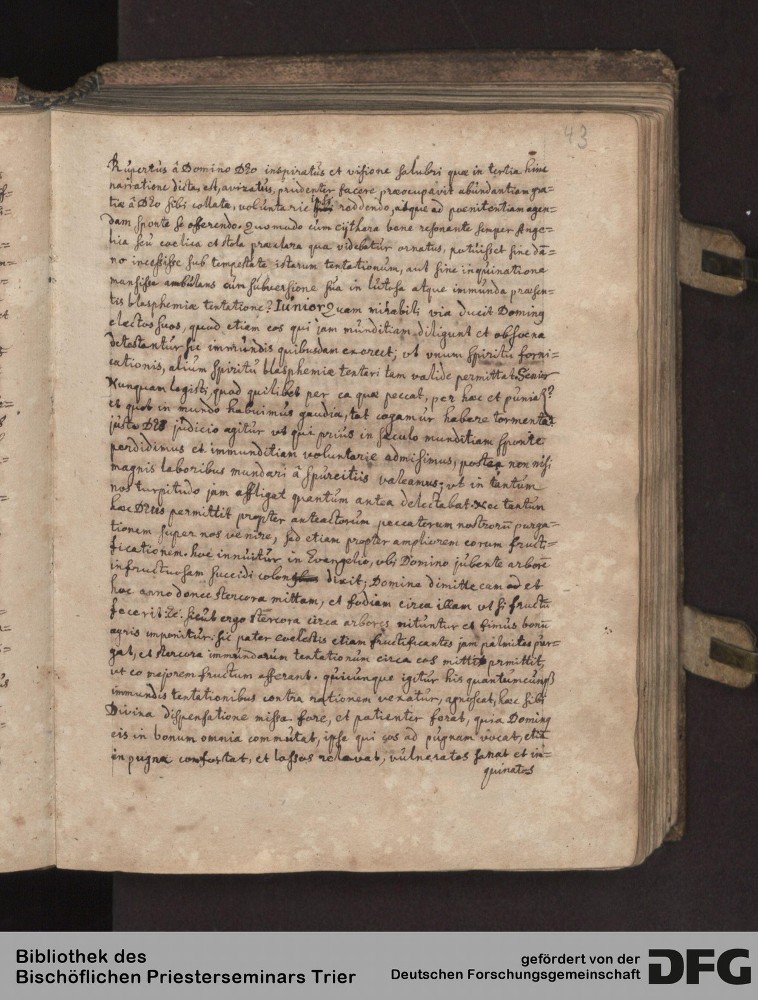 43
Rupertus â Domino Deo inspiratus et visione salubri quæ in tertia hinc
narratione dicta est, avizatus, prudenter facere præocupavit abundantiam gra=
tiæ â Deo sibi collatæ, voluntarie reddendo, atque ad pœnitentiam agen=
dam sponte se offerendo. Quomodo cum cythara bene resonante semper Ange=
lica seu cœlica et stola præclara qua videbatur ornatus, potuisset sine da=
no incessisse sub tempestate istarum tentationum, aut sine inquinatione
mansisse ambulans cum subversione sua in lutosa atque immunda præsen=
tis blasphemiæ tentatione? Iunior Quam mirabili via ducit Doming
electos suos, quod etiam eos qui jam munditiam diligunt et obscœna
detestantur sic immundis quibusdam exercet, vt vnum spiritu forni=
cationis, alium spiritu blasphemiæ tentari tam valide permittat. Senior
Nunquam legisti, quod quilibet per ea quæ peccat, per hæc et punias?
et quot in mundo habuimus gaudia, tot cogamur habere tormenta
juste Dei judicio agitur vt qui prius in sæculo munditiam sponte
perdidimus et immunditiam voluntarie admisimus, postea non nisi
magnis laboribus mundari â spurcitiis valeamus; vt in tantum
nos turpitudo jam affligat quantum antea delectabat. Nec tantum
hæc Deus permittit propter anteactorum peccatorum nostrorū purga=
tionem super nos venire, sed etiam propter ampliorem eorum fructi=
ficationem. hoc innuitur in Evangelio, vbi Domino jubente arborē
infructuosam succidi colonus dixit; Domine dimitte eam et
hoc anno donec stercora mittam, et fodiam circa illam vt si fructū
fecerit &c. sicut ergo stercora circa arbores mittuntur et fimus bonus
agris imponitur: sic pater cœlestis etiam fructificantes jam palmites pur=
gat, et stercora immundarum tentationum circa eos mitti permittit,
vt eo majorem fructum afferant. quicunque igitur his quantumcunq3
immundis tentationibus contra rationem vexatur, agnoscat, hæc sibi
Divina dispensatione missa fore, et patienter ferat, quia Doming
eis in bonum omnia commutat, ipse qui eos ad pugnam vocat, etiā
in pugna confortat, et lassos relevat, vulneratos sanat et in=
quinatos
Bibliothek des
Bischöflichen Priesterseminars Trier
gefördert von der
Deutschen Forschungsgemeinschaft
DFG